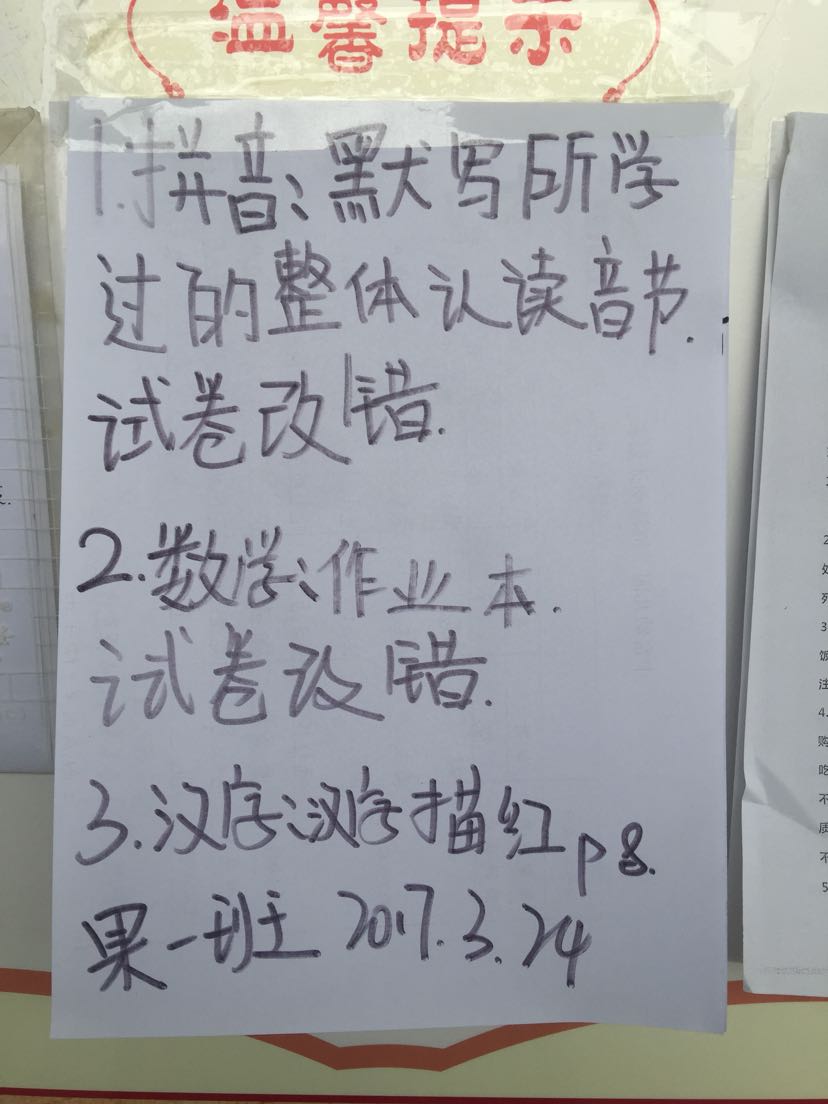 温馨提示
1.拼音:默写所学
过的整体认读音节.
试卷改错.
2.数学:作业本.
试卷改错.
3.汉字:汉字描红p8.
果一班 2017.3.24
2
处
死
3
饭
注
4.
购
吃
不
质
不
5